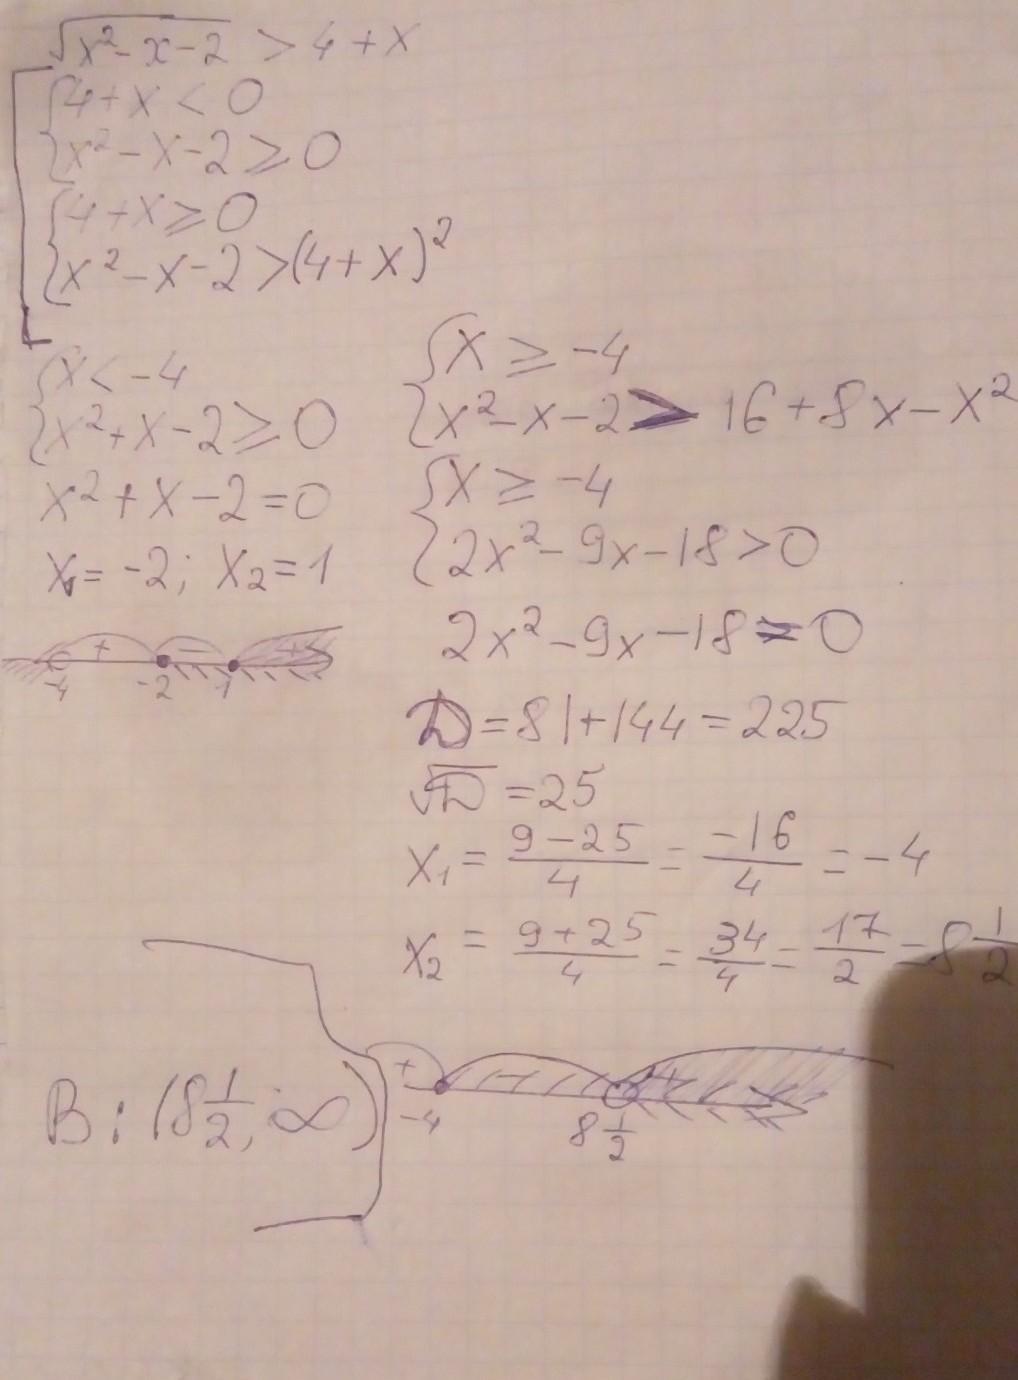 √x²-x-2 > 4+x
4+x < 0
x²-x-2 ≥ 0
4+x ≥ 0
x²-x-2 > (4+x)²
x < -4
x²+x-2 ≥ 0
x²+x-2 = 0
x₁ = -2; x₂ = 1
+ - +
-4 -2 1
x ≥ -4
x²-x-2 > 16+8x-x²
x ≥ -4
2x²-9x-18 > 0
2x²-9x-18 = 0
D = 81+144 = 225
√D = 25
x₁ = (9-25)/4 = -16/4 = -4
x₂ = (9+25)/4 = 34/4 = 17/2 = 8 1/2
+ - +
-4 8 1/2
В: (8 1/2; ∞)